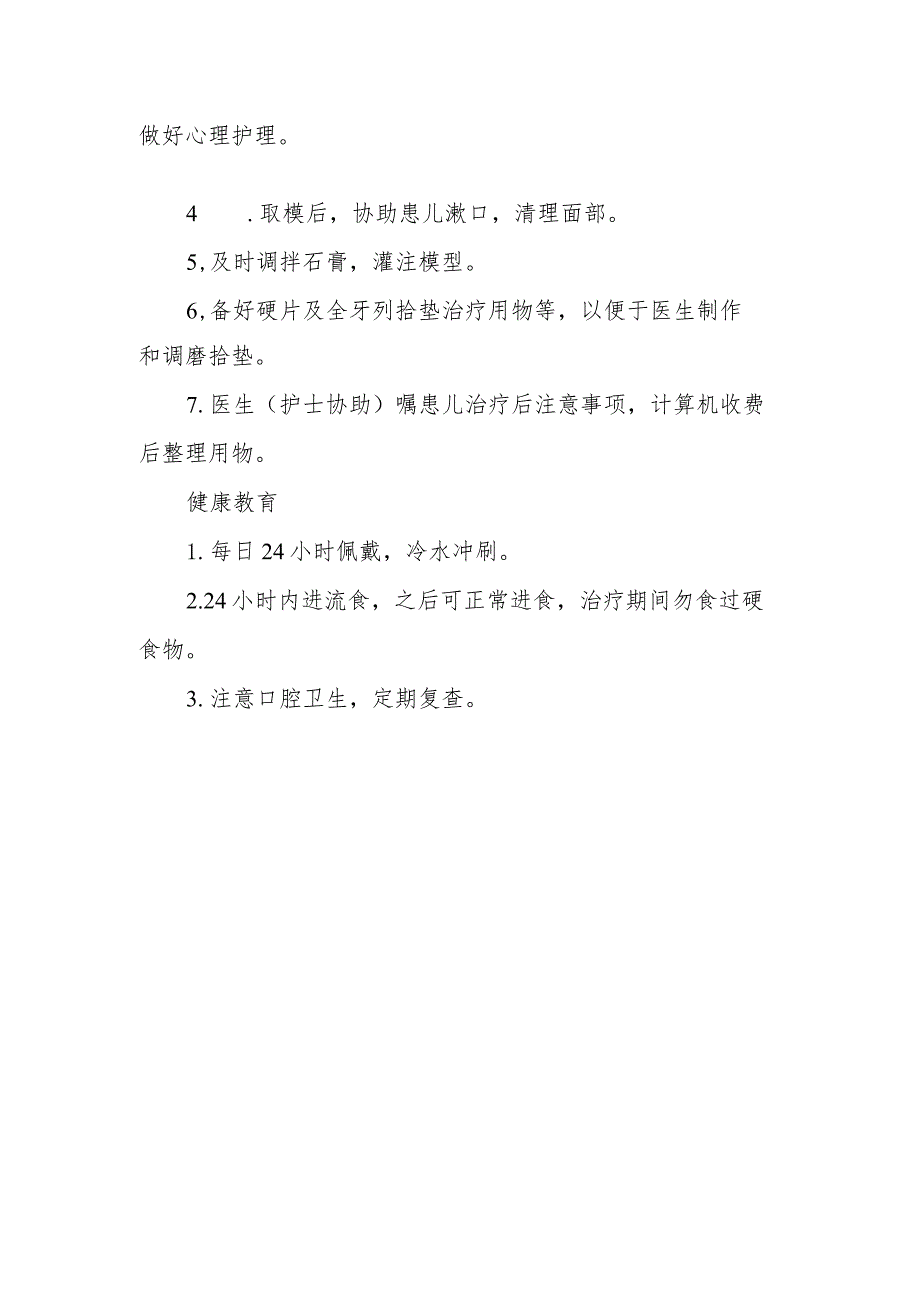 做好心理护理。
4 .取模后，协助患儿漱口，清理面部。
5,及时调拌石膏，灌注模型。
6,备好硬片及全牙列拾垫治疗用物等，以便于医生制作
和调磨拾垫。
7. 医生（护士协助）嘱患儿治疗后注意事项，计算机收费
后整理用物。
健康教育
1. 每日 24 小时佩戴，冷水冲刷。
2.24 小时内进流食，之后可正常进食，治疗期间勿食过硬
食物。
3. 注意口腔卫生，定期复查。